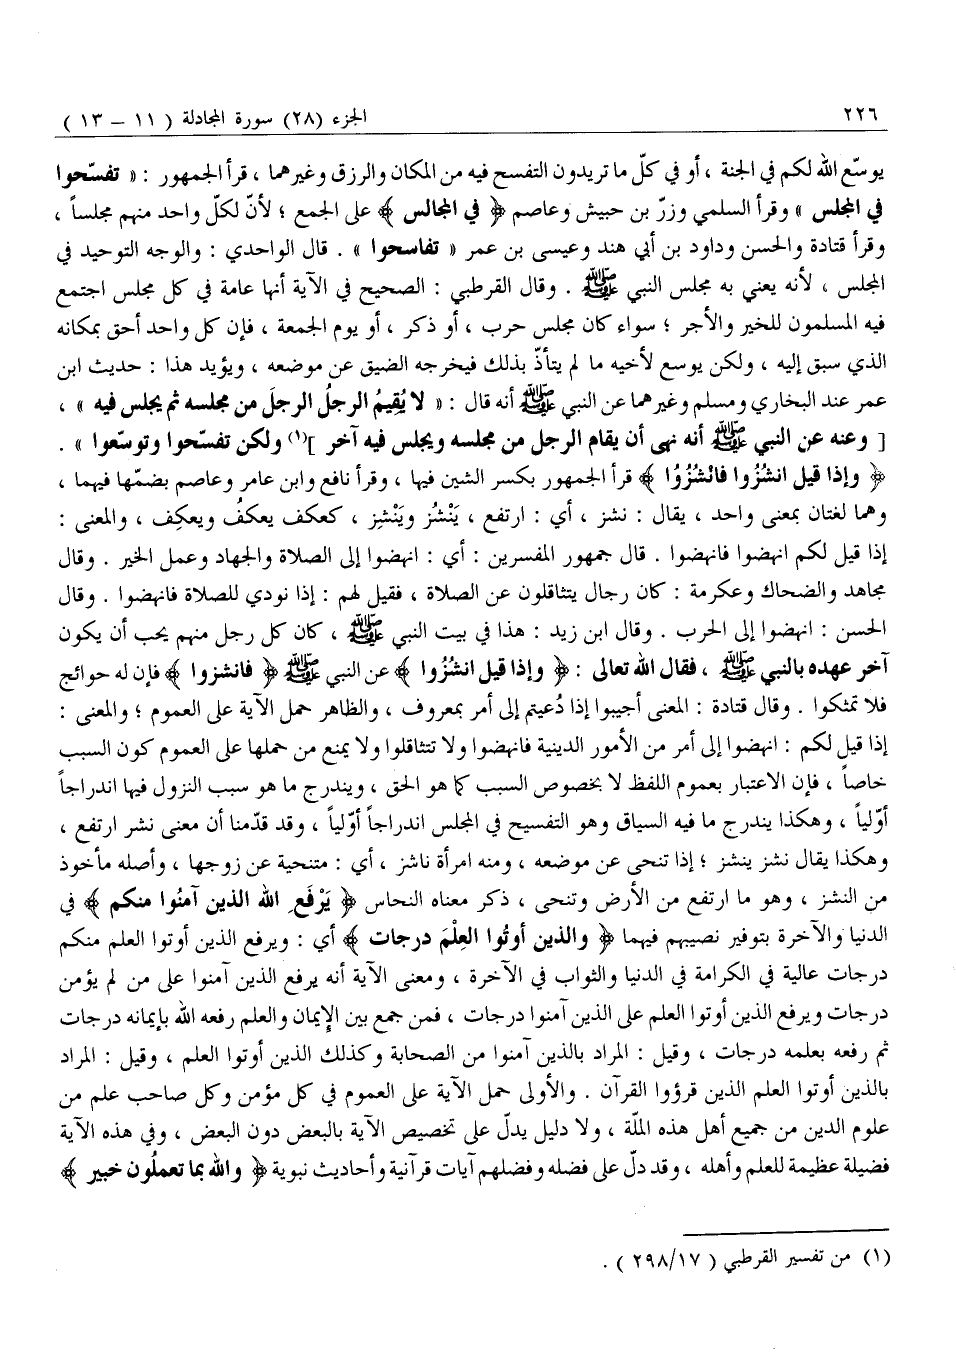 ٢٢٦
الجزء (٢٨) سورة المجادلة ( ١١ – ١٣ )
يوسّع الله لكم في الجنة ، أو في كلّ ما تريدون التفسح فيه من المكان والرزق وغيرهما ، قرأ الجمهور : « تفسّحوا
في المجلس » وقرأ السلمي وزرّ بن حبيش وعاصم ﴿ في المجالس ﴾ على الجمع ؛ لأنّ لكلّ واحد منهم مجلساً ،
وقرأ قتادة والحسن وداود بن أبي هند وعيسى بن عمر « تفاسحوا » . قال الواحدي : والوجه التوحيد في
المجلس ، لأنه يعني به مجلس النبي ﷺ . وقال القرطبي : الصحيح في الآية أنها عامة في كل مجلس اجتمع
فيه المسلمون للخير والأجر ؛ سواء كان مجلس حرب ، أو ذكر ، أو يوم الجمعة ، فإن كل واحد أحق بمكانه
الذي سبق إليه ، ولكن يوسع لأخيه ما لم يتأذّ بذلك فيخرجه الضيق عن موضعه ، ويؤيد هذا : حديث ابن
عمر عند البخاري ومسلم وغيرهما عن النبي ﷺ أنه قال : « لا يُقِيمُ الرجلُ الرجلَ من مجلسه ثم يجلس فيه » ،
[ وعنه عن النبي ﷺ أنه نهى أن يقام الرجل من مجلسه ويجلس فيه آخر ](١) ولكن تفسّحوا وتوسّعوا » .
﴿ وإذا قيل انشُزُوا فانْشُزُوا ﴾ قرأ الجمهور بكسر الشين فيها ، وقرأ نافع وابن عامر وعاصم بضمّها فيهما ،
وهما لغتان بمعنى واحد ، يقال : نشز ، أي : ارتفع ، يَنْشُز ويَنْشِز ، كعكف يعكفُ ويعكِف ، والمعنى :
إذا قيل لكم انهضوا فانهضوا . قال جمهور المفسرين : أي : انهضوا إلى الصلاة والجهاد وعمل الخير . وقال
مجاهد والضحاك وعكرمة : كان رجال يتثاقلون عن الصلاة ، فقيل لهم : إذا نودي للصلاة فانهضوا . وقال
الحسن : انهضوا إلى الحرب . وقال ابن زيد : هذا في بيت النبي ﷺ ، كان كل رجل منهم يحب أن يكون
آخر عهده بالنبي ﷺ ، فقال الله تعالى : ﴿ وإذا قيل انشُزُوا ﴾ عن النبي ﷺ ﴿ فانشزوا ﴾ فإن له حوائج
فلا تمثكوا . وقال قتادة : المعنى أجيبوا إذا دُعيتم إلى أمر بمعروف ، والظاهر حمل الآية على العموم ؛ والمعنى :
إذا قيل لكم : انهضوا إلى أمر من الأمور الدينية فانهضوا ولا تتثاقلوا ولا يمنع من حملها على العموم كون السبب
خاصاً ، فإن الاعتبار بعموم اللفظ لا بخصوص السبب كما هو الحق ، ويندرج ما هو سبب النزول فيها اندراجاً
أوّلياً ، وهكذا يندرج ما فيه السياق وهو التفسيح في المجلس اندراجاً أوّلياً ، وقد قدّمنا أن معنى نشر ارتفع ،
وهكذا يقال نشز ينشز ؛ إذا تنحى عن موضعه ، ومنه امرأة ناشز ، أي : متنحية عن زوجها ، وأصله مأخوذ
من النشز ، وهو ما ارتفع من الأرض وتنحى ، ذكر معناه النحاس ﴿ يَرْفَعِ الله الذين آمنُوا منكم ﴾ في
الدنيا والآخرة بتوفير نصيبهم فيهما ﴿ والذين أوتُوا العِلْمَ درجات ﴾ أي : ويرفع الذين أوتوا العلم منكم
درجات عالية في الكرامة في الدنيا والثواب في الآخرة ، ومعنى الآية أنه يرفع الذين آمنوا على من لم يؤمن
درجات ويرفع الذين أوتوا العلم على الذين آمنوا درجات ، فمن جمع بين الإيمان والعلم رفعه الله بإيمانه درجات
ثم رفعه بعلمه درجات ، وقيل : المراد بالذين آمنوا من الصحابة وكذلك الذين أوتوا العلم ، وقيل : المراد
بالذين أوتوا العلم الذين قرؤوا القرآن . والأولى حمل الآية على العموم في كل مؤمن وكل صاحب علم من
علوم الدين من جميع أهل هذه الملّة ، ولا دليل يدلّ على تخصيص الآية بالبعض دون البعض ، وفي هذه الآية
فضيلة عظيمة للعلم وأهله ، وقد دلّ على فضله وفضلهم آيات قرآنية وأحاديث نبوية ﴿ والله بما تعملُون خبير ﴾
(١) من تفسير القرطبي ( ٢٩٨/١٧ ) .